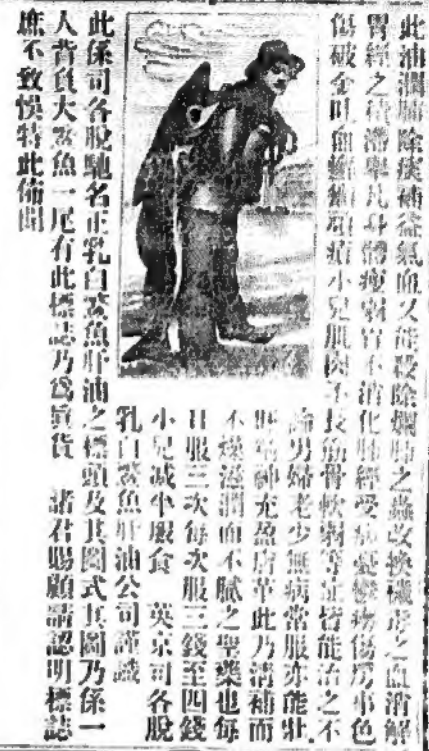 此油潤肺除痰補益氣血又能殺除爛肺之蟲改換穢
之血消解
胃經之積滯舉凡身體瘦弱胃不消化肺經受病憂鬱癆傷房事色
傷破金吐血
癧疽小兒肌肉不長筋骨軟弱等症皆能治之不
論男婦老少無病常服亦能壯
精神充盈膚革此乃清補而
不燥滋潤而不膩之聖藥也每
日服三次每次服三錢至四錢
小兒減半服食 英京司各脫
乳白鰵魚肝油公司謹識
此係司各脫馳名正乳白鰵魚肝油之標頭及其圖式其圖乃係一
人背負大鰵魚一尾有此標誌乃為眞貨 諸君賜顧請認明標誌
庶不致悞特此佈聞